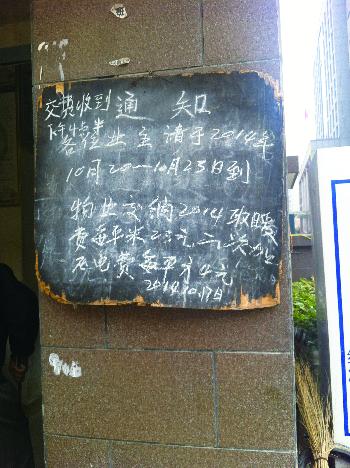 交费收到 通 知
下午
各位业主请于2014年
10月20—10月25日到
物业交纳2014取暖
费每平米23元二次加
压电费每平方4元
2014.10.17日